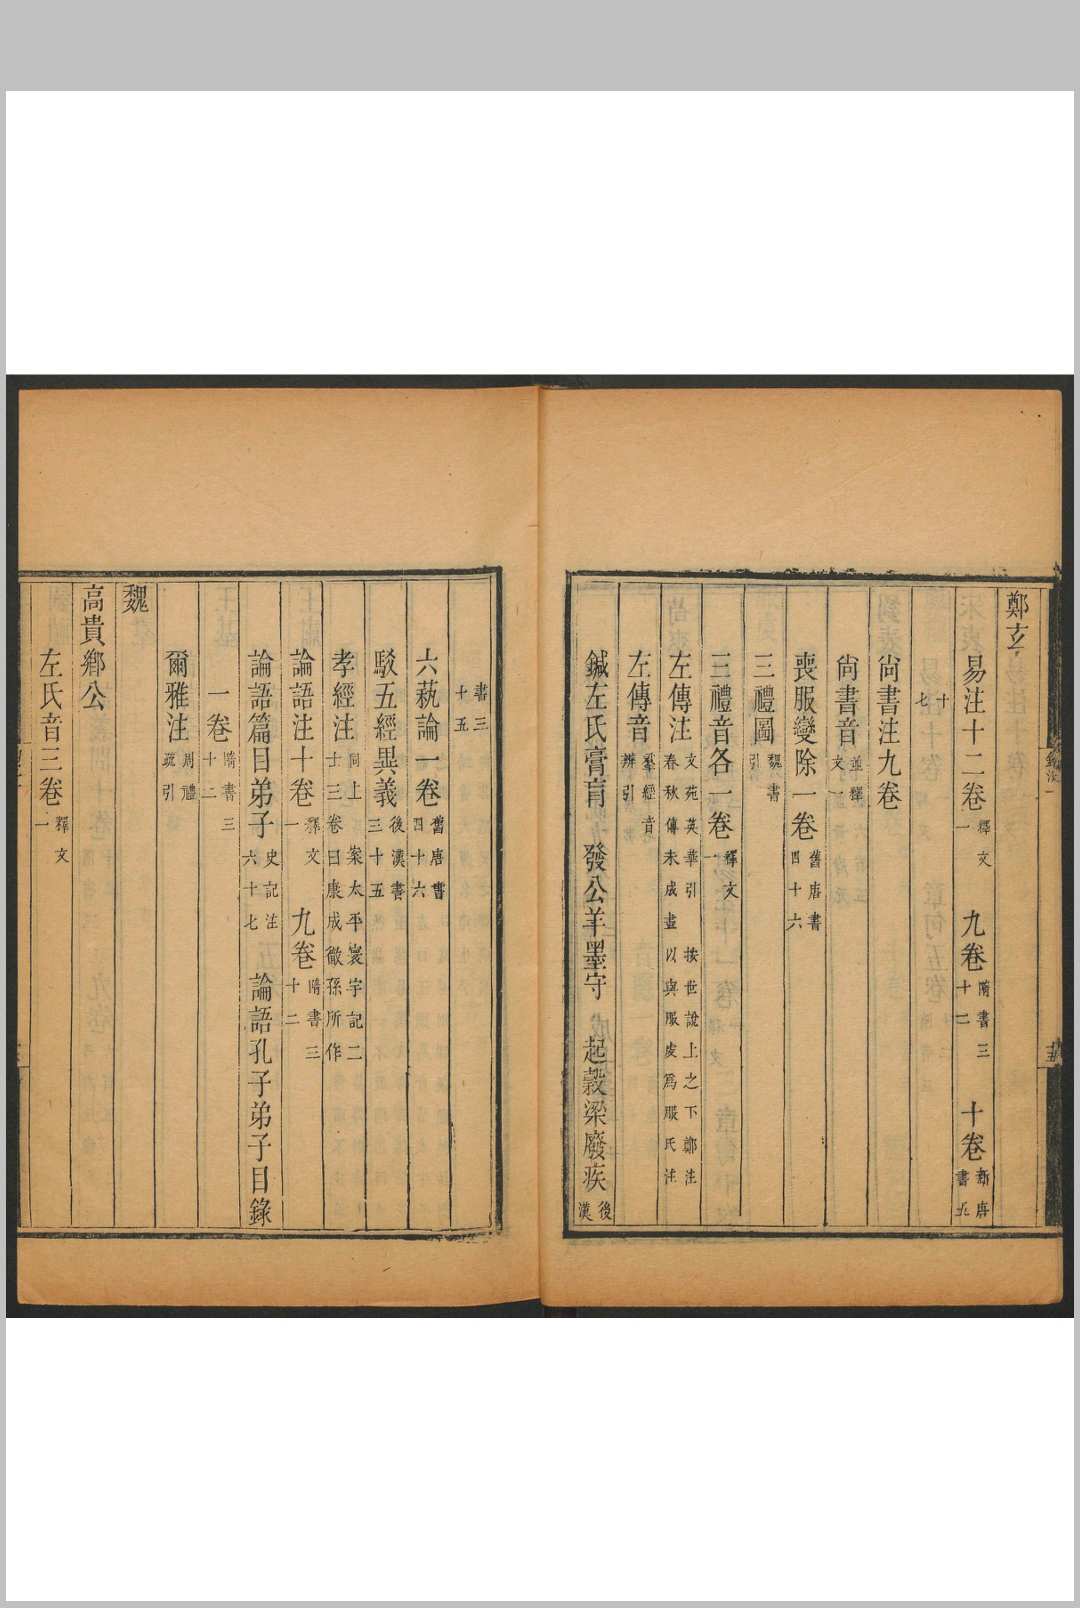 鄭玄
易注十二卷 釋文一 九卷 隋書三十二 十卷 新唐書五
十七
尙書注九卷
尙書音 並釋文一
喪服變除一卷 舊唐書四十六
三禮圖 魏書引
三禮音各一卷 釋文一
左傳注 文苑英華引春秋傳未成畫 按世說上之下鄭注以與服虔爲服氏注
左傳音 羣經音辨引
鍼左氏膏肓 發公羊墨守 起穀梁廢疾 後漢
書三十五
六蓺論一卷 舊唐書四十六
駁五經異義 後漢書三十五
孝經注 同上 案太平寰宇記二十三卷曰康成徹孫所作
論語注十卷 釋文一 九卷 隋書三十二
論語篇目弟子 史記注六十七 論語孔子弟子目錄
一卷 隋書三十二
爾雅注 周禮疏引
魏
高貴鄕公
左氏音三卷 釋文一